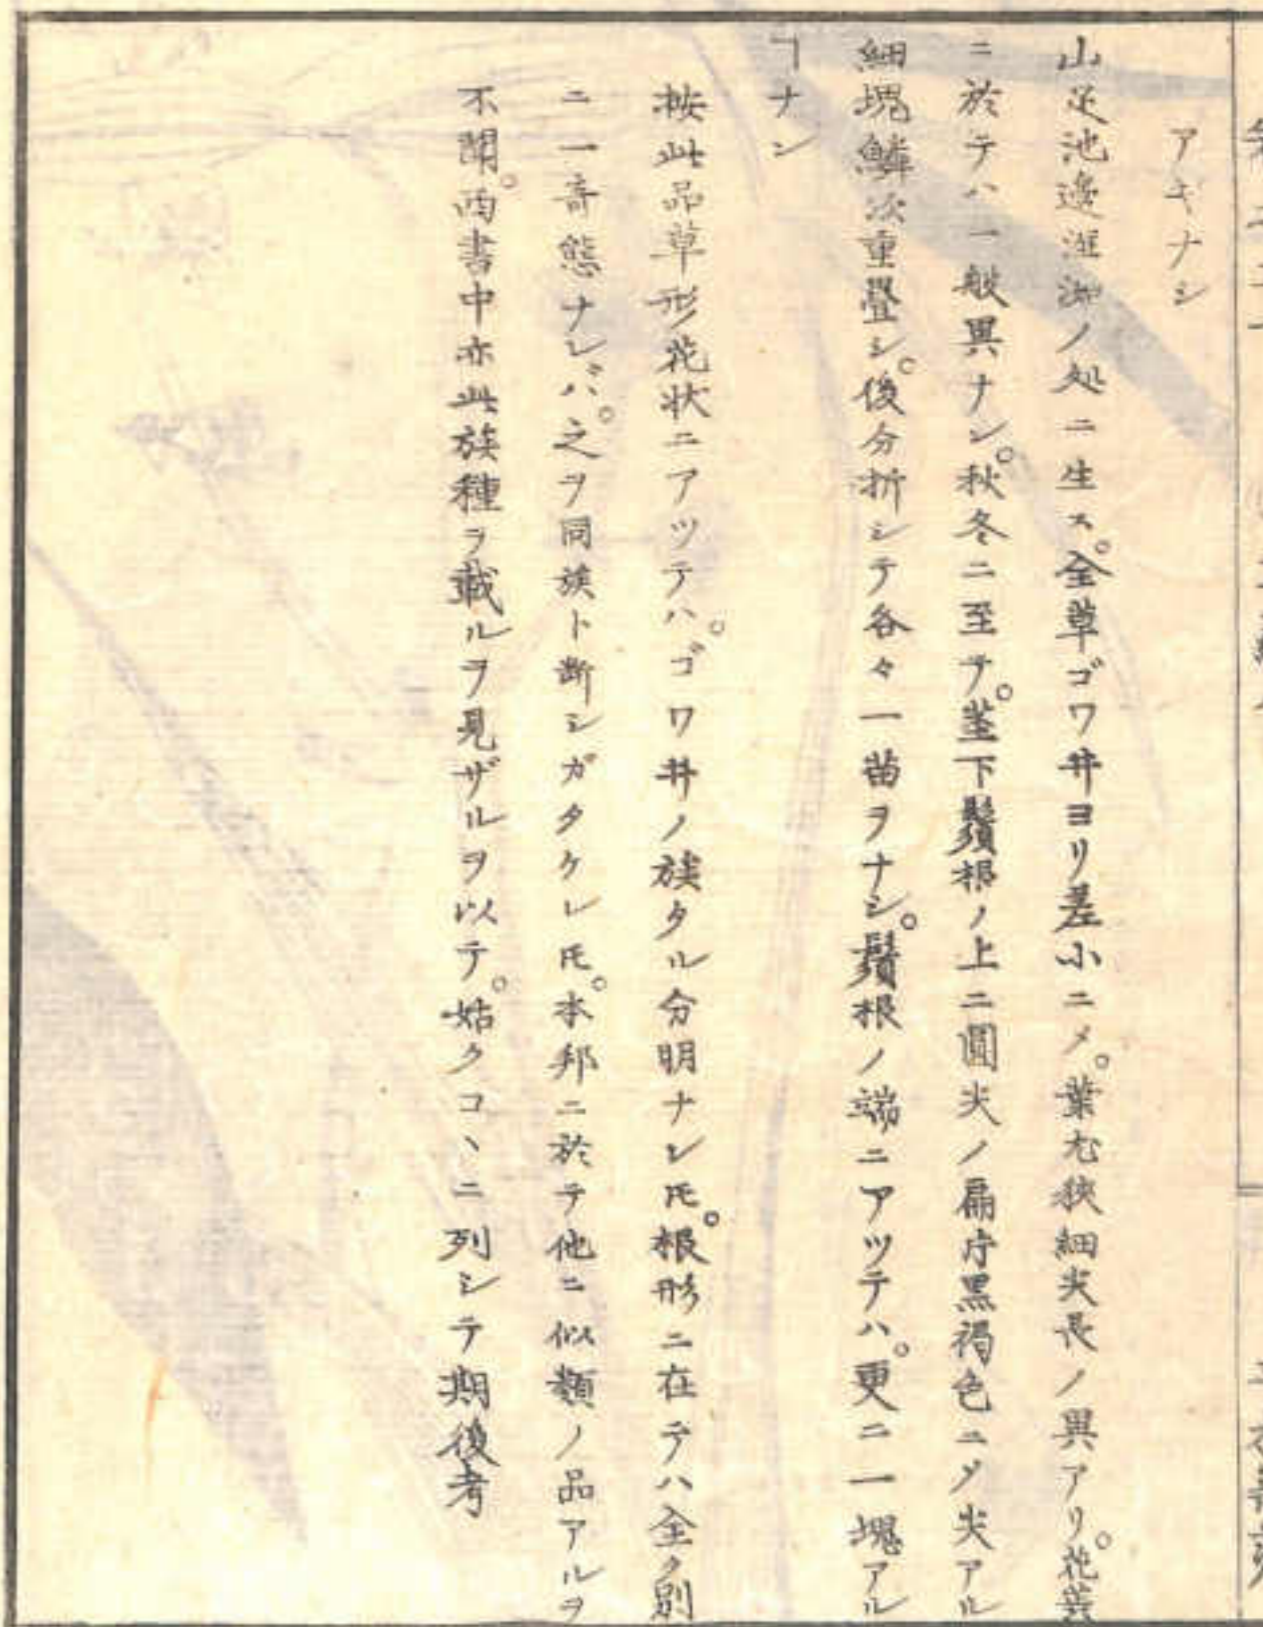 アギナシ
山足池邊沮洳ノ処ニ生ス。全草ゴワ井ヨリ差小ニメ。葉尤狭細尖長ノ異アリ。花蕚
ニ於テハ一般異ナシ。秋冬ニ至テ。莖下鬚根ノ上ニ圓尖ノ扁片黒褐色ニメ尖アル
細塊鱗次重疊シ。後分折シテ各々一苗ヲナシ。鬚根ノ端ニアツテハ。更ニ一塊アル
ヿナシ
按此品草形花状ニアツテハ。ゴワ井ノ族タル分明ナレ𪜈。根形ニ在テハ全ク別
ニ一奇態ナレバ。之ヲ同族ト断シガタケレ𪜈。本邦ニ於テ他ニ似類ノ品アルヲ
不聞。西書中亦此族種ヲ載ルヲ見ザルヲ以テ。姑クコヽニ列シテ期後考